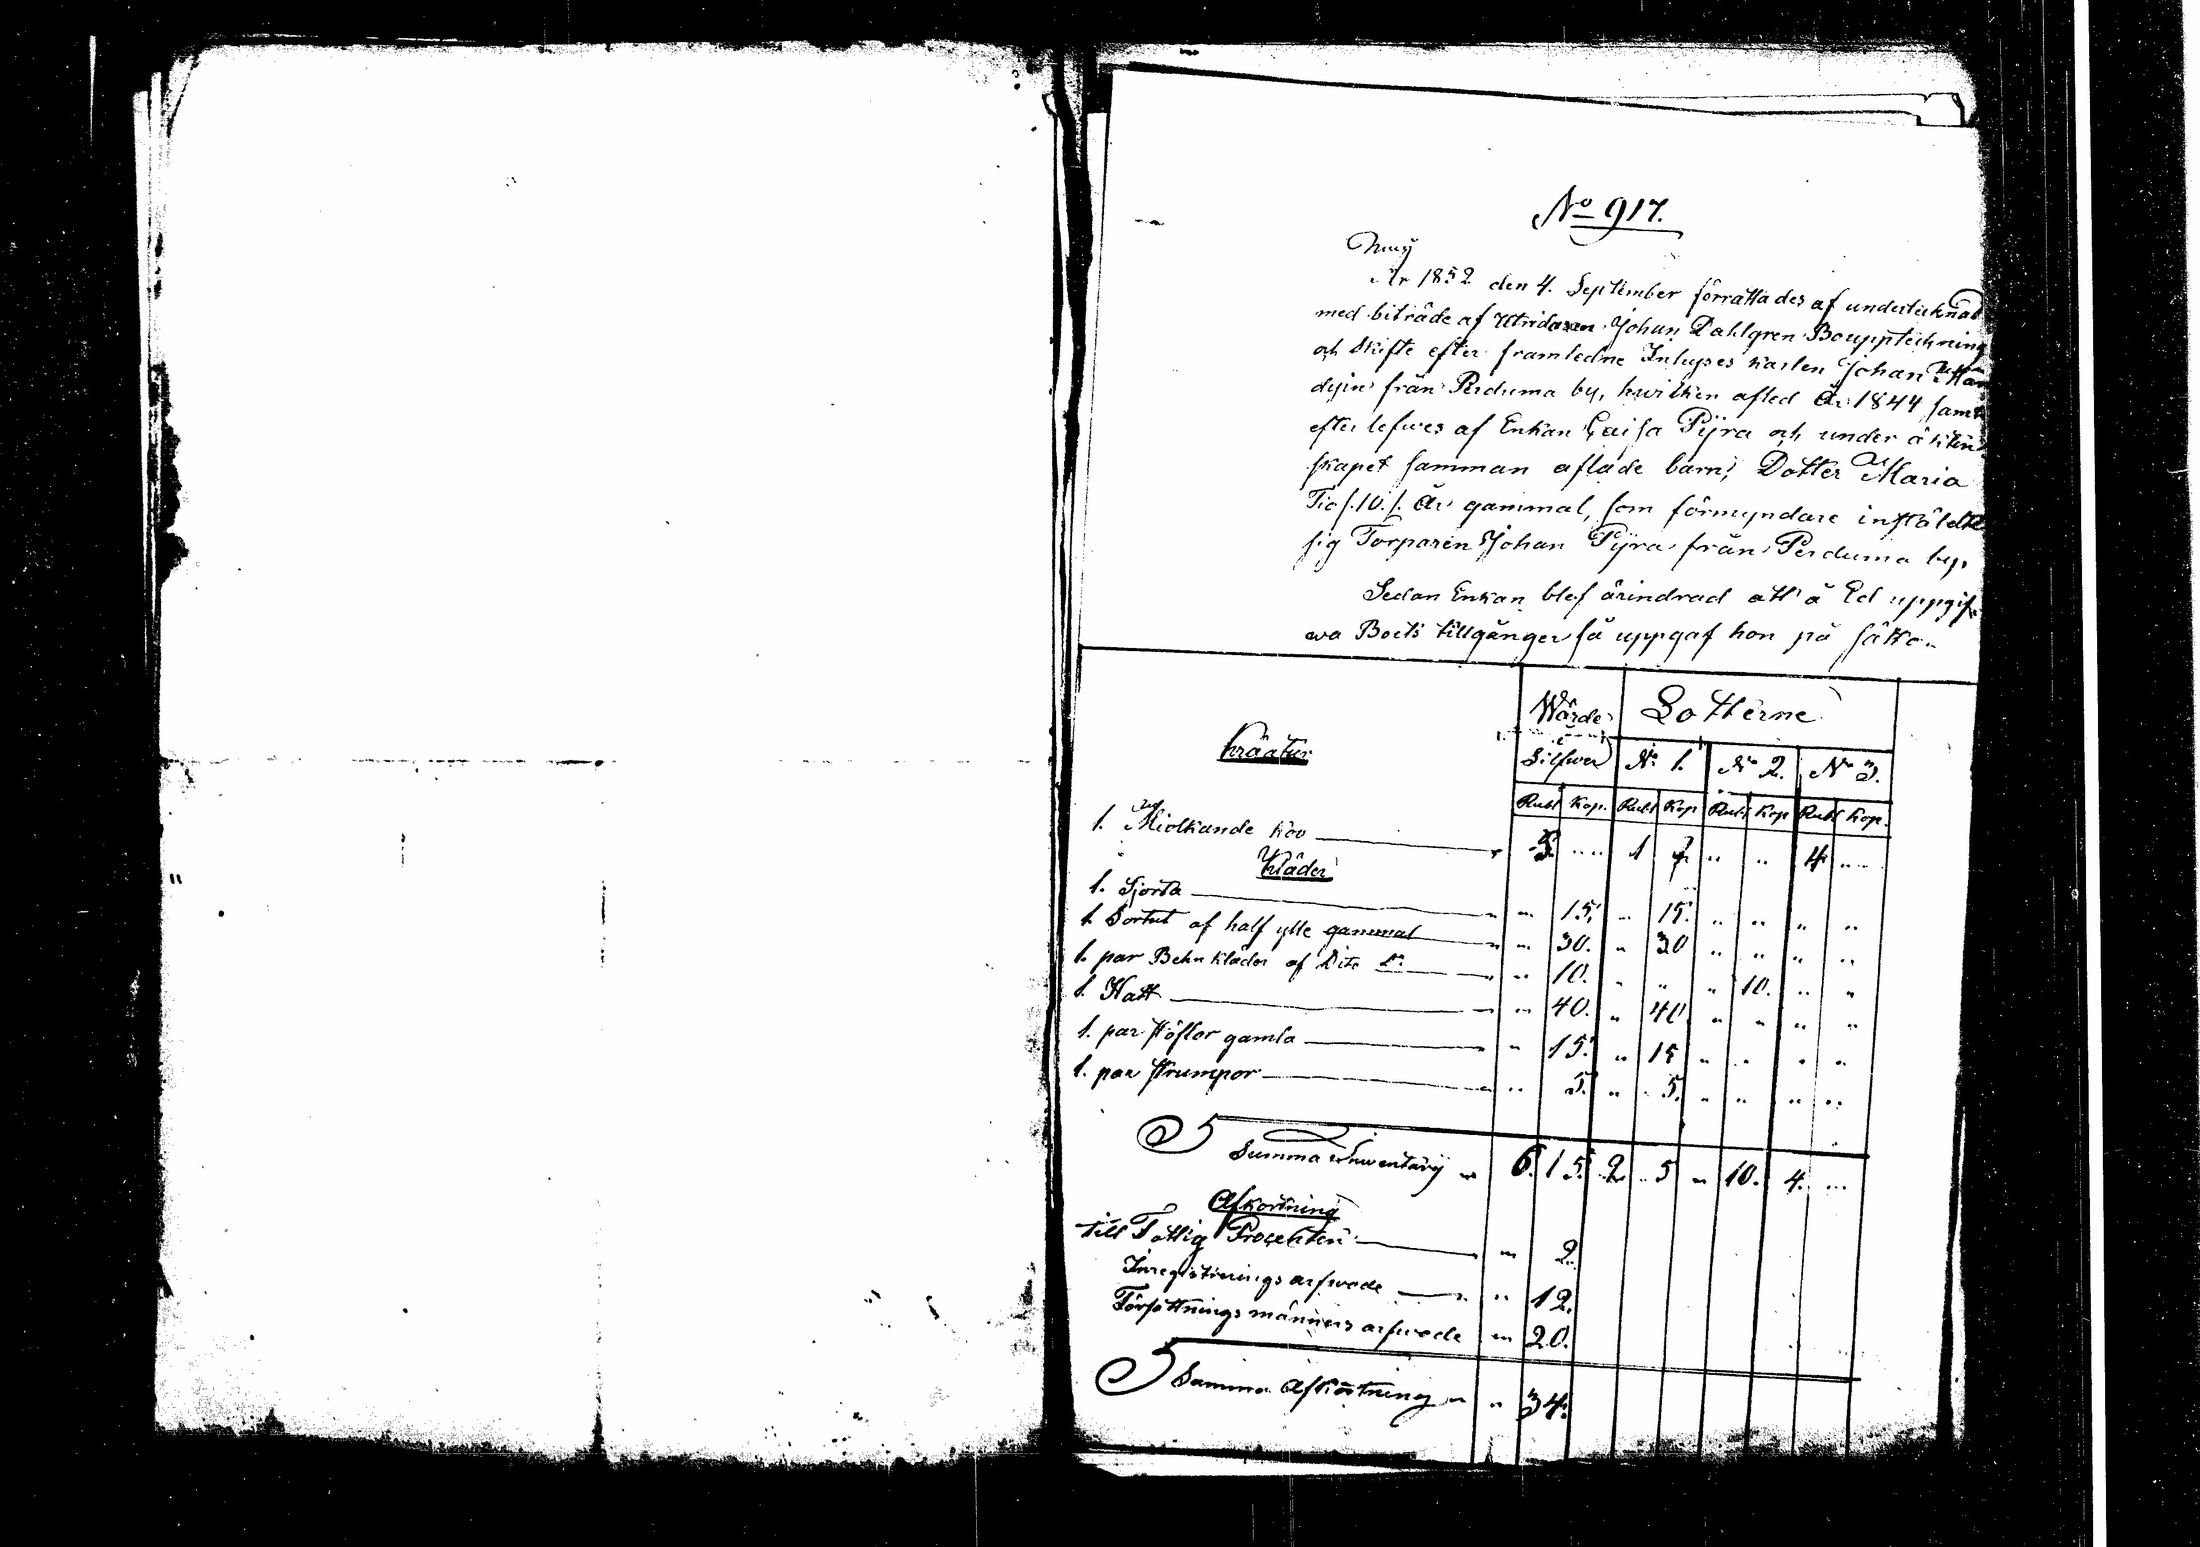 No 917.
År 1852 den 4. September förrättades af undertecknad
med biträde af Johan Dahlgren Bouppteckning
och Skifte efter framledne Inhyses karlen Johan
från Perduma by, hwilken afled År 1844 samt
efterlefwes af Enkan Caisa Pijra och under äkten
skapet samman aflade barn; Dotter Maria
Tio /.10./. År gammal, som förmyndare instälte
sig Torparen Johan Pijra från Perduma by.
Sedan Enkan blef ärindrad att å Ed uppgif
wa Boets tillgånger så uppgaf hon på sätt
Wärde i Silfwer Lotterne
Kräatur N: 1. No 2. No 3.
Rubl Kop. Rubl Kop Rubl Kop Rubl Kop.
1. Miolkande koo 5. .. 1 .. .. 4 ..
Kläder
1. Sjorta " 15. " 15. " " " "
1. Sortut af half ylle gammal " 30. " 30 " " " "
1. par Behnkläder af Dito Do " 10. " " " 10. " "
1. Hatt " 40. " 40 " " " "
1. par Stöflor gamla " 15. " 15 " " " "
1. par Strumpor " 5. " 5. " " " "
Summa Inwentary 6. 15. 2 " 5 " 10. 4. "
Afkortning
till Fattig Procenten " 2.
Inregistrerings arfwode " 12.
Förrättningsmännens arfwode " 20.
Summa Afkortning " 34.